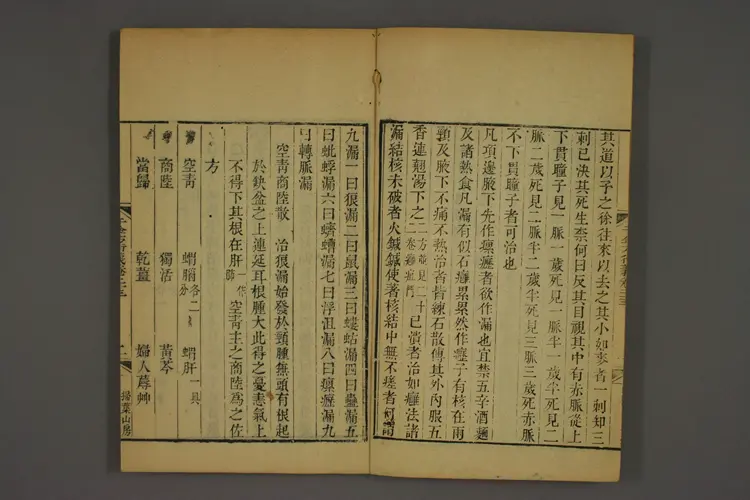 其道以予之徐往來以去之其小如麥者一刺知三
刺已決其死生奈何曰反其目視其中有赤脈從上
下貫瞳子見一脈一歲死見一脈半一歲半死見二
脈二歲死見二脈半二歲半死見三脈三歲死赤脈
不下貫瞳子者可治也
凡項邊腋下先作瘰癧者欲作漏也宜禁五辛酒麵
及諸熱食凡漏有似石癰累累然作癧子有核在兩
頸及腋下不痛不熱治者皆練石散傅其外內服五
香連翹湯下之二方並見二十二卷癰疽門已潰者治如癰法諸
漏結核未破者火鍼鍼使著核結中無不瘥者何謂
九漏一曰狼漏二曰鼠漏三曰螻蛄漏四曰蜂漏五
曰蚍蜉漏六曰蠐螬漏七曰浮沮漏八曰瘰癧漏九
曰轉脈漏
空青商陸散 治狼漏始發於頸腫無頭有根起
於缺盆之上連延耳根腫大此得之憂恚氣上
不得下其根在肝一作肺空青主之商陸為之佐
方
空青 蝟腦各二分 蝟肝一具
商陸 獨活 黃芩
當歸 乾薑 婦人蓐艸
二
掃葉山房